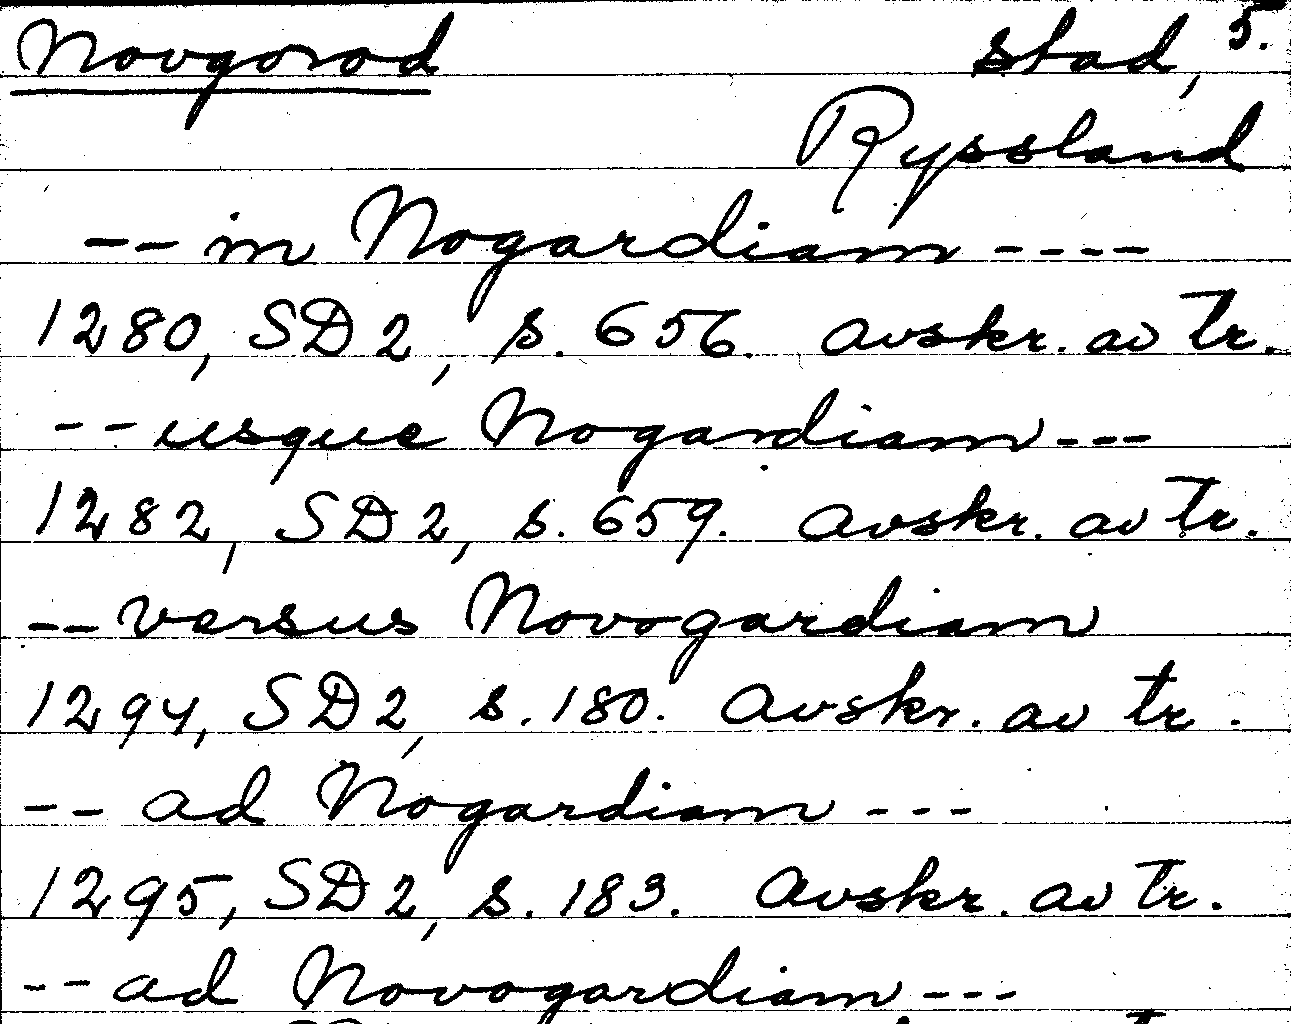 Novgorod stad, 5.
Ryssland
-- in Nogardiam ----
1280, SD 2, s. 656. avskr. av tr.
-- usque Nogardiam ---
1282, SD 2, s. 659. avskr. av tr.
-- versus Novogardiam
1294, SD 2, s. 180. Avskr. av tr.
-- ad Nogardiam ---
1295, SD 2, s. 183. Avskr. av tr.
-- ad Novogardiam ---